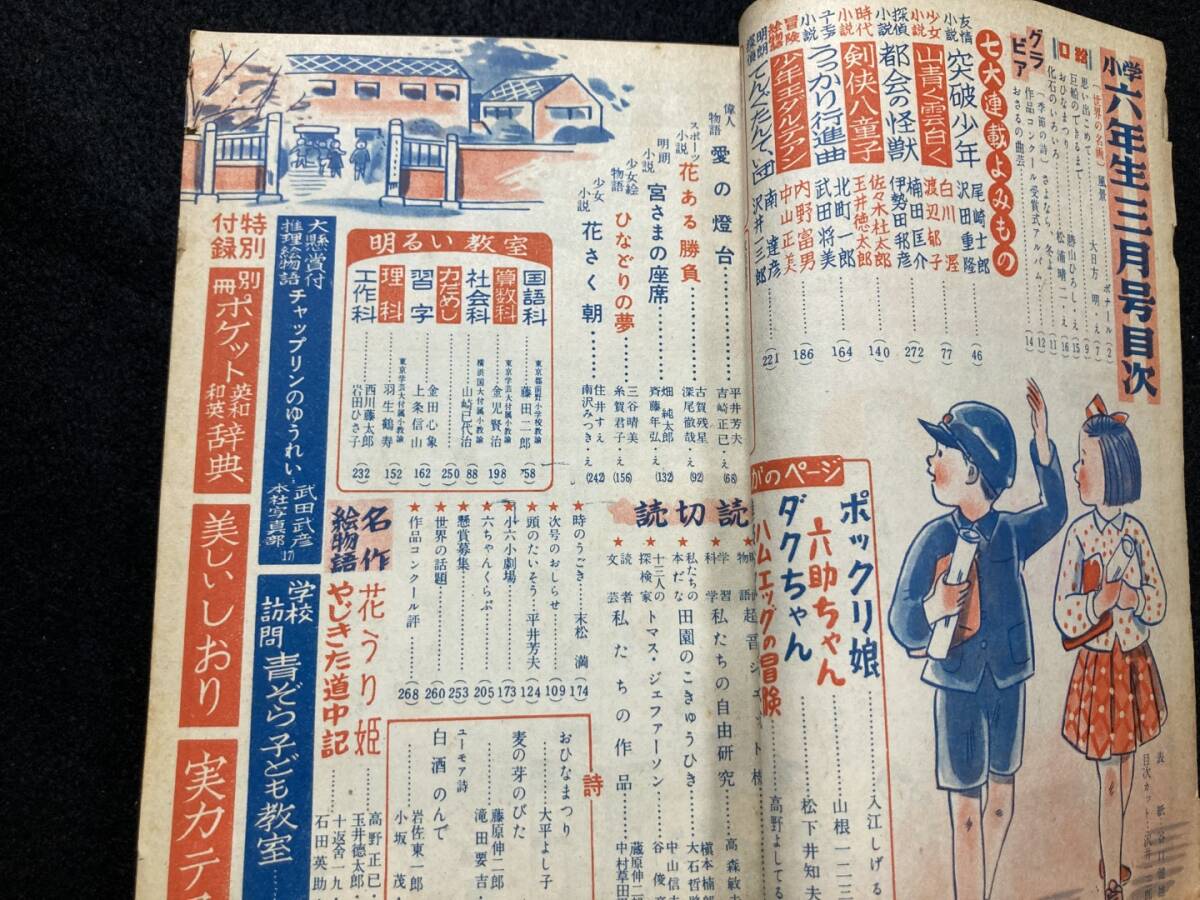 小学六年生三月号目次
口絵
〔世界の名画〕風景……ボナール 2
思い出こめて……大日方 明・え 7
巨船のできるまで…… 9
おひなまつり……勝山ひろし・え 15
化石のいろいろ……松浦晴一・え 16
グラビア
〔季節の詩〕さよなら、冬よ…… 11
作品コンクール受賞式アルバム 12
おさるの曲芸…… 14
七大連載よみもの
友情小説 突破少年 尾崎士郎 沢田重隆 46
少女小説 山青く雲白く 白川渥 渡辺郁子 77
探偵小説 都会の怪獣 楠田匡介 伊勢田邦彦 272
時代小説 剣侠八童子 佐々木杜太郎 玉井徳太郎 140
ユーモア小説 うっかり行進曲 北町一郎 武田将美 164
冒険絵物語 少年王ダルテアン 内野富男 中山正美 186
明朗探偵 てんぐたんてい団 南達彦 沢井一三郎 221
偉人物語 愛の燈台 平井芳夫 吉崎正巳・え (68)
スポーツ小説 花ある勝負 古賀残星 深尾徹哉・え (92)
明朗小説 宮さまの座席 畑純太郎 斉藤年弘・え (132)
少女絵物語 ひなどりの夢 三谷晴美 糸賀君子・え (156)
少女小説 花さく朝 住井すえ 南沢みつき・え (242)
明るい教室
国語科 藤田二一郎 (58)
算数科 東京学芸大付属小教諭 金児賢治 198
社会科 横浜国大付属小教諭 山崎已代治 88
力だめし 250
習字 金田心象 上条信山 162
理科 東京学芸大付属小教諭 羽生鶴寿 152
工作科 西川藤太郎 岩田ひさ子 232
特別付録
大懸賞付推理絵物語 チャップリンのゆうれい… 武田武彦 本社写真部 17
別冊 ポケット英和和英辞典
美しいしおり
実力テ
学校訪問 青ぞら子ども教室
がのページ
ポックリ娘 入江しげる
六助ちゃん 山根一二三
ダクちゃん 松下井知夫
ハムエッグの冒険 高野よしてる
読切読
超音ジェット機 高森敏夫
学習科学 私たちの自由研究 槇本楠郎
私たちの本だな 田園のこきゅうひき 大石哲路 中山信夫
十三人の探検家 トマス・ジェファーソン 谷俊彦
読者文芸 私たちの作品 藤原伸二郎 中村草田
★時のうごき…末松満 174
★次号のおしらせ 109
★頭のたいそう…平井芳夫 124
★小六小劇場 173
★六ちゃんくらぶ 205
★懸賞募集 253
★世界の話題 260
★作品コンクール評 268
詩
おひなまつり 大平よし子
麦の芽のびた 藤原伸二郎 滝田要吉
ユーモア詩
白酒のんで 岩佐東一郎 小坂茂
名作絵物語
花うり姫 高野正巳 玉井徳太郎
やじきた道中記 十返舎一九 石田英助